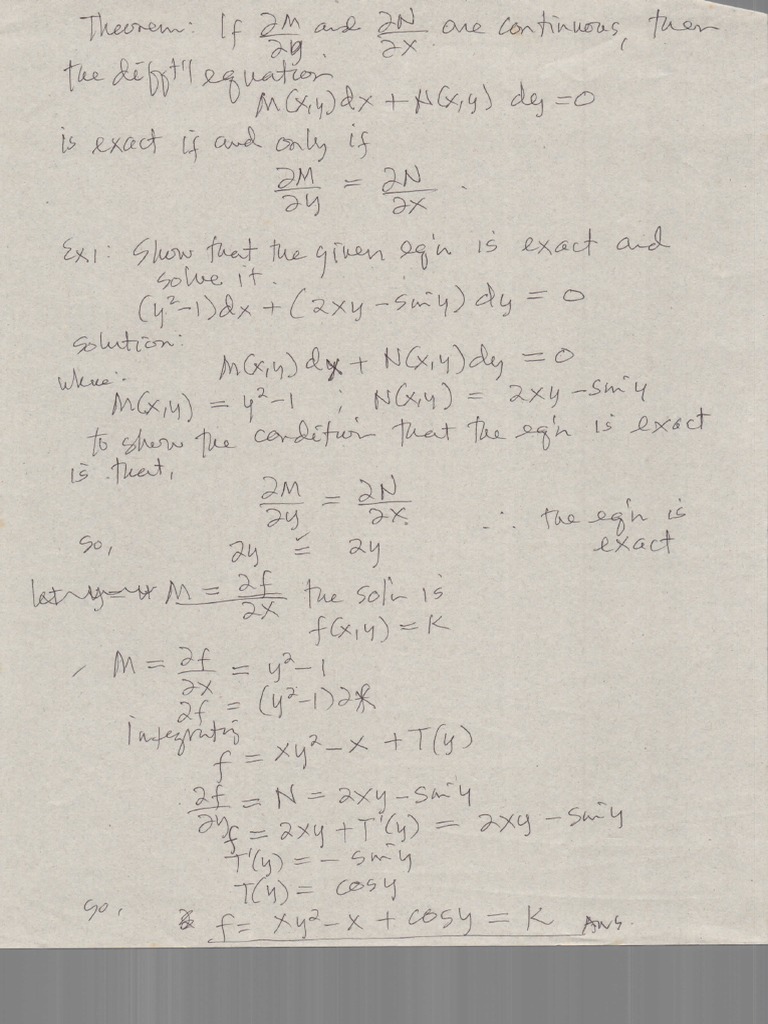 Theorem: If ∂M/∂y and ∂N/∂x are continuous, then
the difft'l equation
M(x,y)dx + N(x,y) dy = 0
is exact if and only if
∂M/∂y = ∂N/∂x .
Ex1: Show that the given eq'n is exact and
solve it.
(y²-1)dx + (2xy - sin y) dy = 0
Solution:
M(x,y) dx + N(x,y) dy = 0
where:
M(x,y) = y²-1 ; N(x,y) = 2xy - sin y
to show the condition that the eq'n is exact
is that,
∂M/∂y = ∂N/∂x. ∴ the eq'n is
so, 2y = 2y exact
M = ∂f/∂x the sol'n is
f(x,y) = K
M = ∂f/∂x = y²-1
∂f = (y²-1)∂x
Integrating
f = xy² - x + T(y)
∂f/∂y = N = 2xy - sin y
f = 2xy + T'(y) = 2xy - sin y
T'(y) = - sin y
T(y) = cos y
so, f = xy² - x + cos y = K Ans.